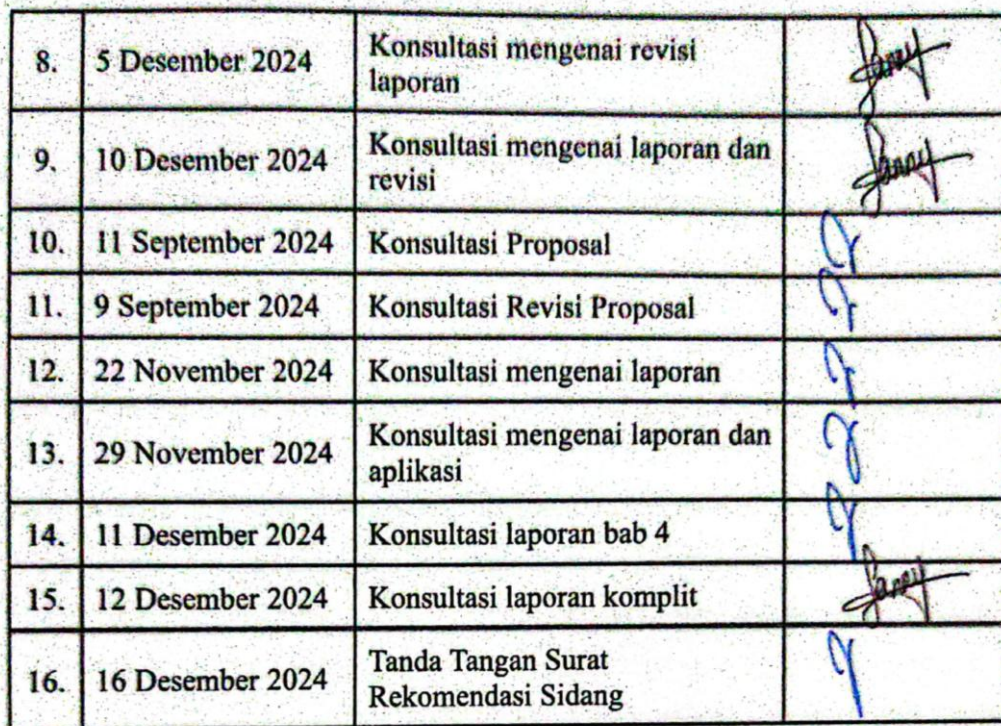 8. 5 Desember 2024 Konsultasi mengenai revisi
laporan
9. 10 Desember 2024 Konsultasi mengenai laporan dan
revisi
10. 11 September 2024 Konsultasi Proposal
11. 9 September 2024 Konsultasi Revisi Proposal
12. 22 November 2024 Konsultasi mengenai laporan
13. 29 November 2024 Konsultasi mengenai laporan dan
aplikasi
14. 11 Desember 2024 Konsultasi laporan bab 4
15. 12 Desember 2024 Konsultasi laporan komplit
16. 16 Desember 2024 Tanda Tangan Surat
Rekomendasi Sidang